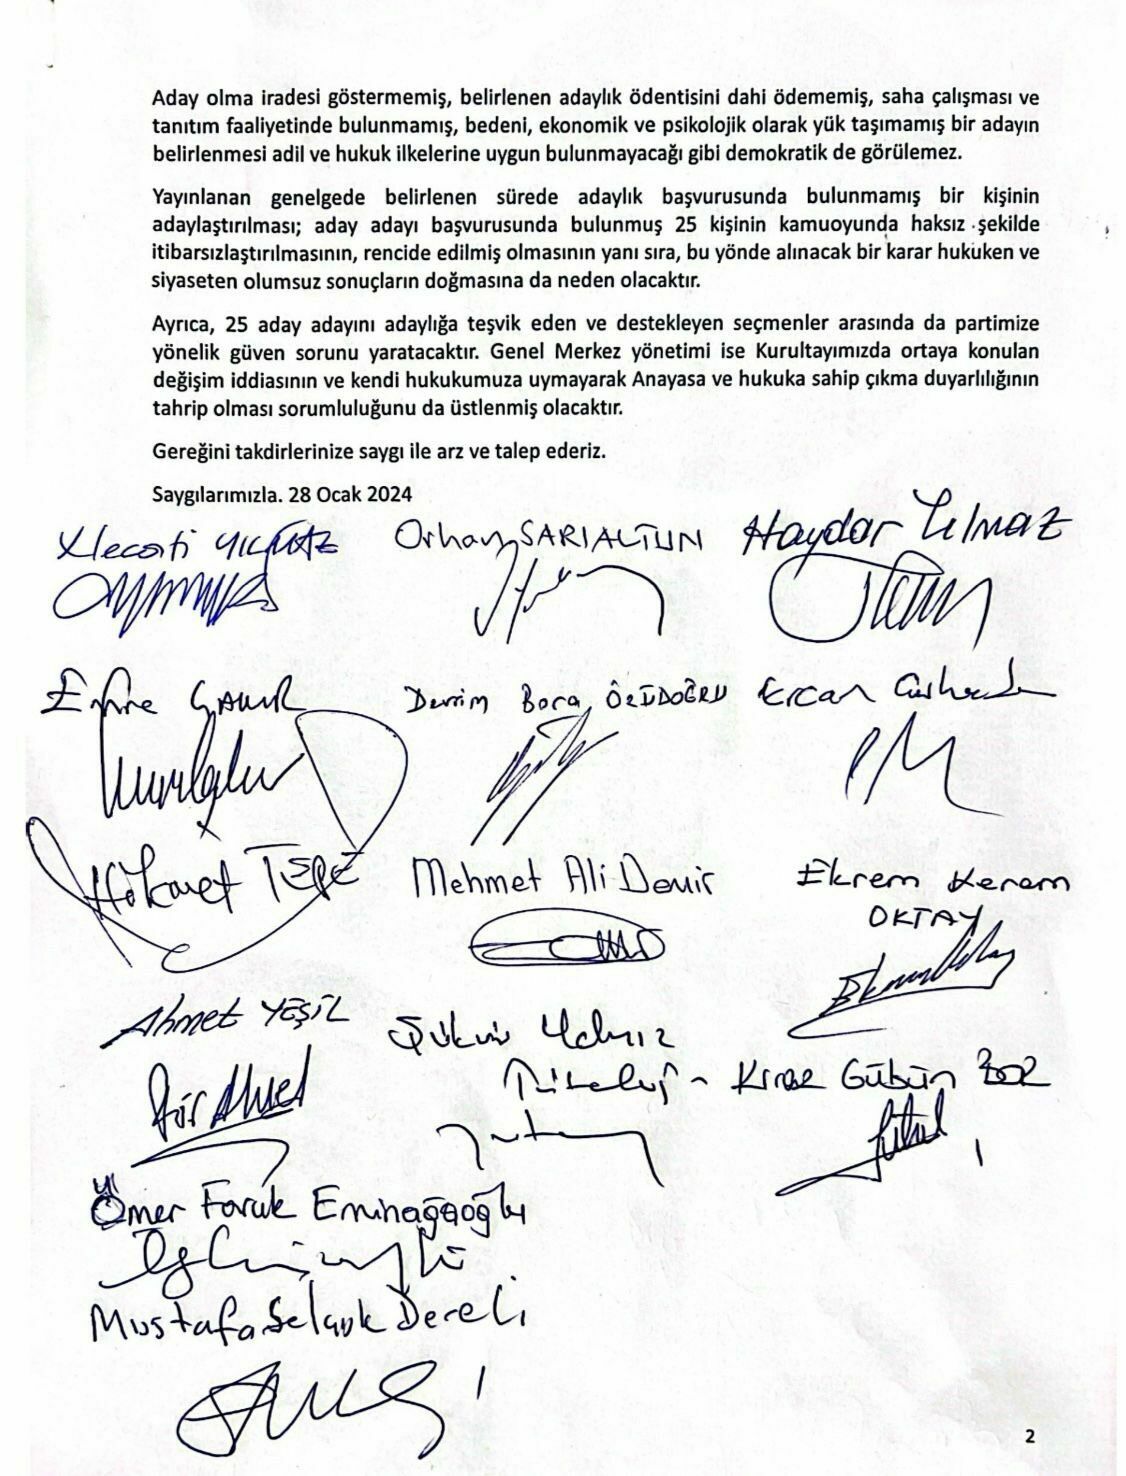 Aday olma iradesi göstermemiş, belirlenen adaylık ödentisini dahi ödememiş, saha çalışması ve
tanıtım faaliyetinde bulunmamış, bedeni, ekonomik ve psikolojik olarak yük taşımamış bir adayın
belirlenmesi adil ve hukuk ilkelerine uygun bulunmayacağı gibi demokratik de görülemez.
Yayınlanan genelgede belirlenen sürede adaylık başvurusunda bulunmamış bir kişinin
adaylaştırılması; aday adayı başvurusunda bulunmuş 25 kişinin kamuoyunda haksız şekilde
itibarsızlaştırılmasının, rencide edilmiş olmasının yanı sıra, bu yönde alınacak bir karar hukuken ve
siyaseten olumsuz sonuçların doğmasına da neden olacaktır.
Ayrıca, 25 aday adayını adaylığa teşvik eden ve destekleyen seçmenler arasında da partimize
yönelik güven sorunu yaratacaktır. Genel Merkez yönetimi ise Kurultayımızda ortaya konulan
değişim iddiasının ve kendi hukukumuza uymayarak Anayasa ve hukuka sahip çıkma duyarlılığının
tahrip olması sorumluluğunu da üstlenmiş olacaktır.
Gereğini takdirlerinize saygı ile arz ve talep ederiz.
Saygılarımızla. 28 Ocak 2024
Necati Orhan SARIALTUN Haydar Yılmaz
Emre Devrim Bora ÖZÜDOĞRU Ercan
Hikmet TEPE Mehmet Ali Demir Ekrem Kerem
OKTAY
Ahmet YEŞİL Şükrü Yalnız
Ömer Faruk Eminağaoğlu
Mustafa Selçuk Dereli
2